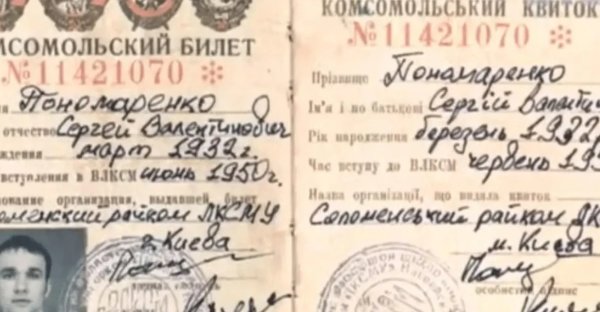 КОМСОМОЛЬСКИЙ БИЛЕТ
№11421070 *
Пономаренко
отчество Сергей Валентинович
март 1932 г.
вступления в ВЛКСМ июнь 1950 г.
организации, выдавшей билет
райком ЛКСМУ
г. Киева
КОМСОМОЛЬСЬКИЙ КВИТОК
№11421070 *
Прізвище Пономаренко
Ім'я і по батькові Сергій Валенти
Рік народження березень 1932
Час вступу до ВЛКСМ червень 19
Назва організації, що видала квиток
Соломенський райком ЛК
м. Києва
особистий підпис